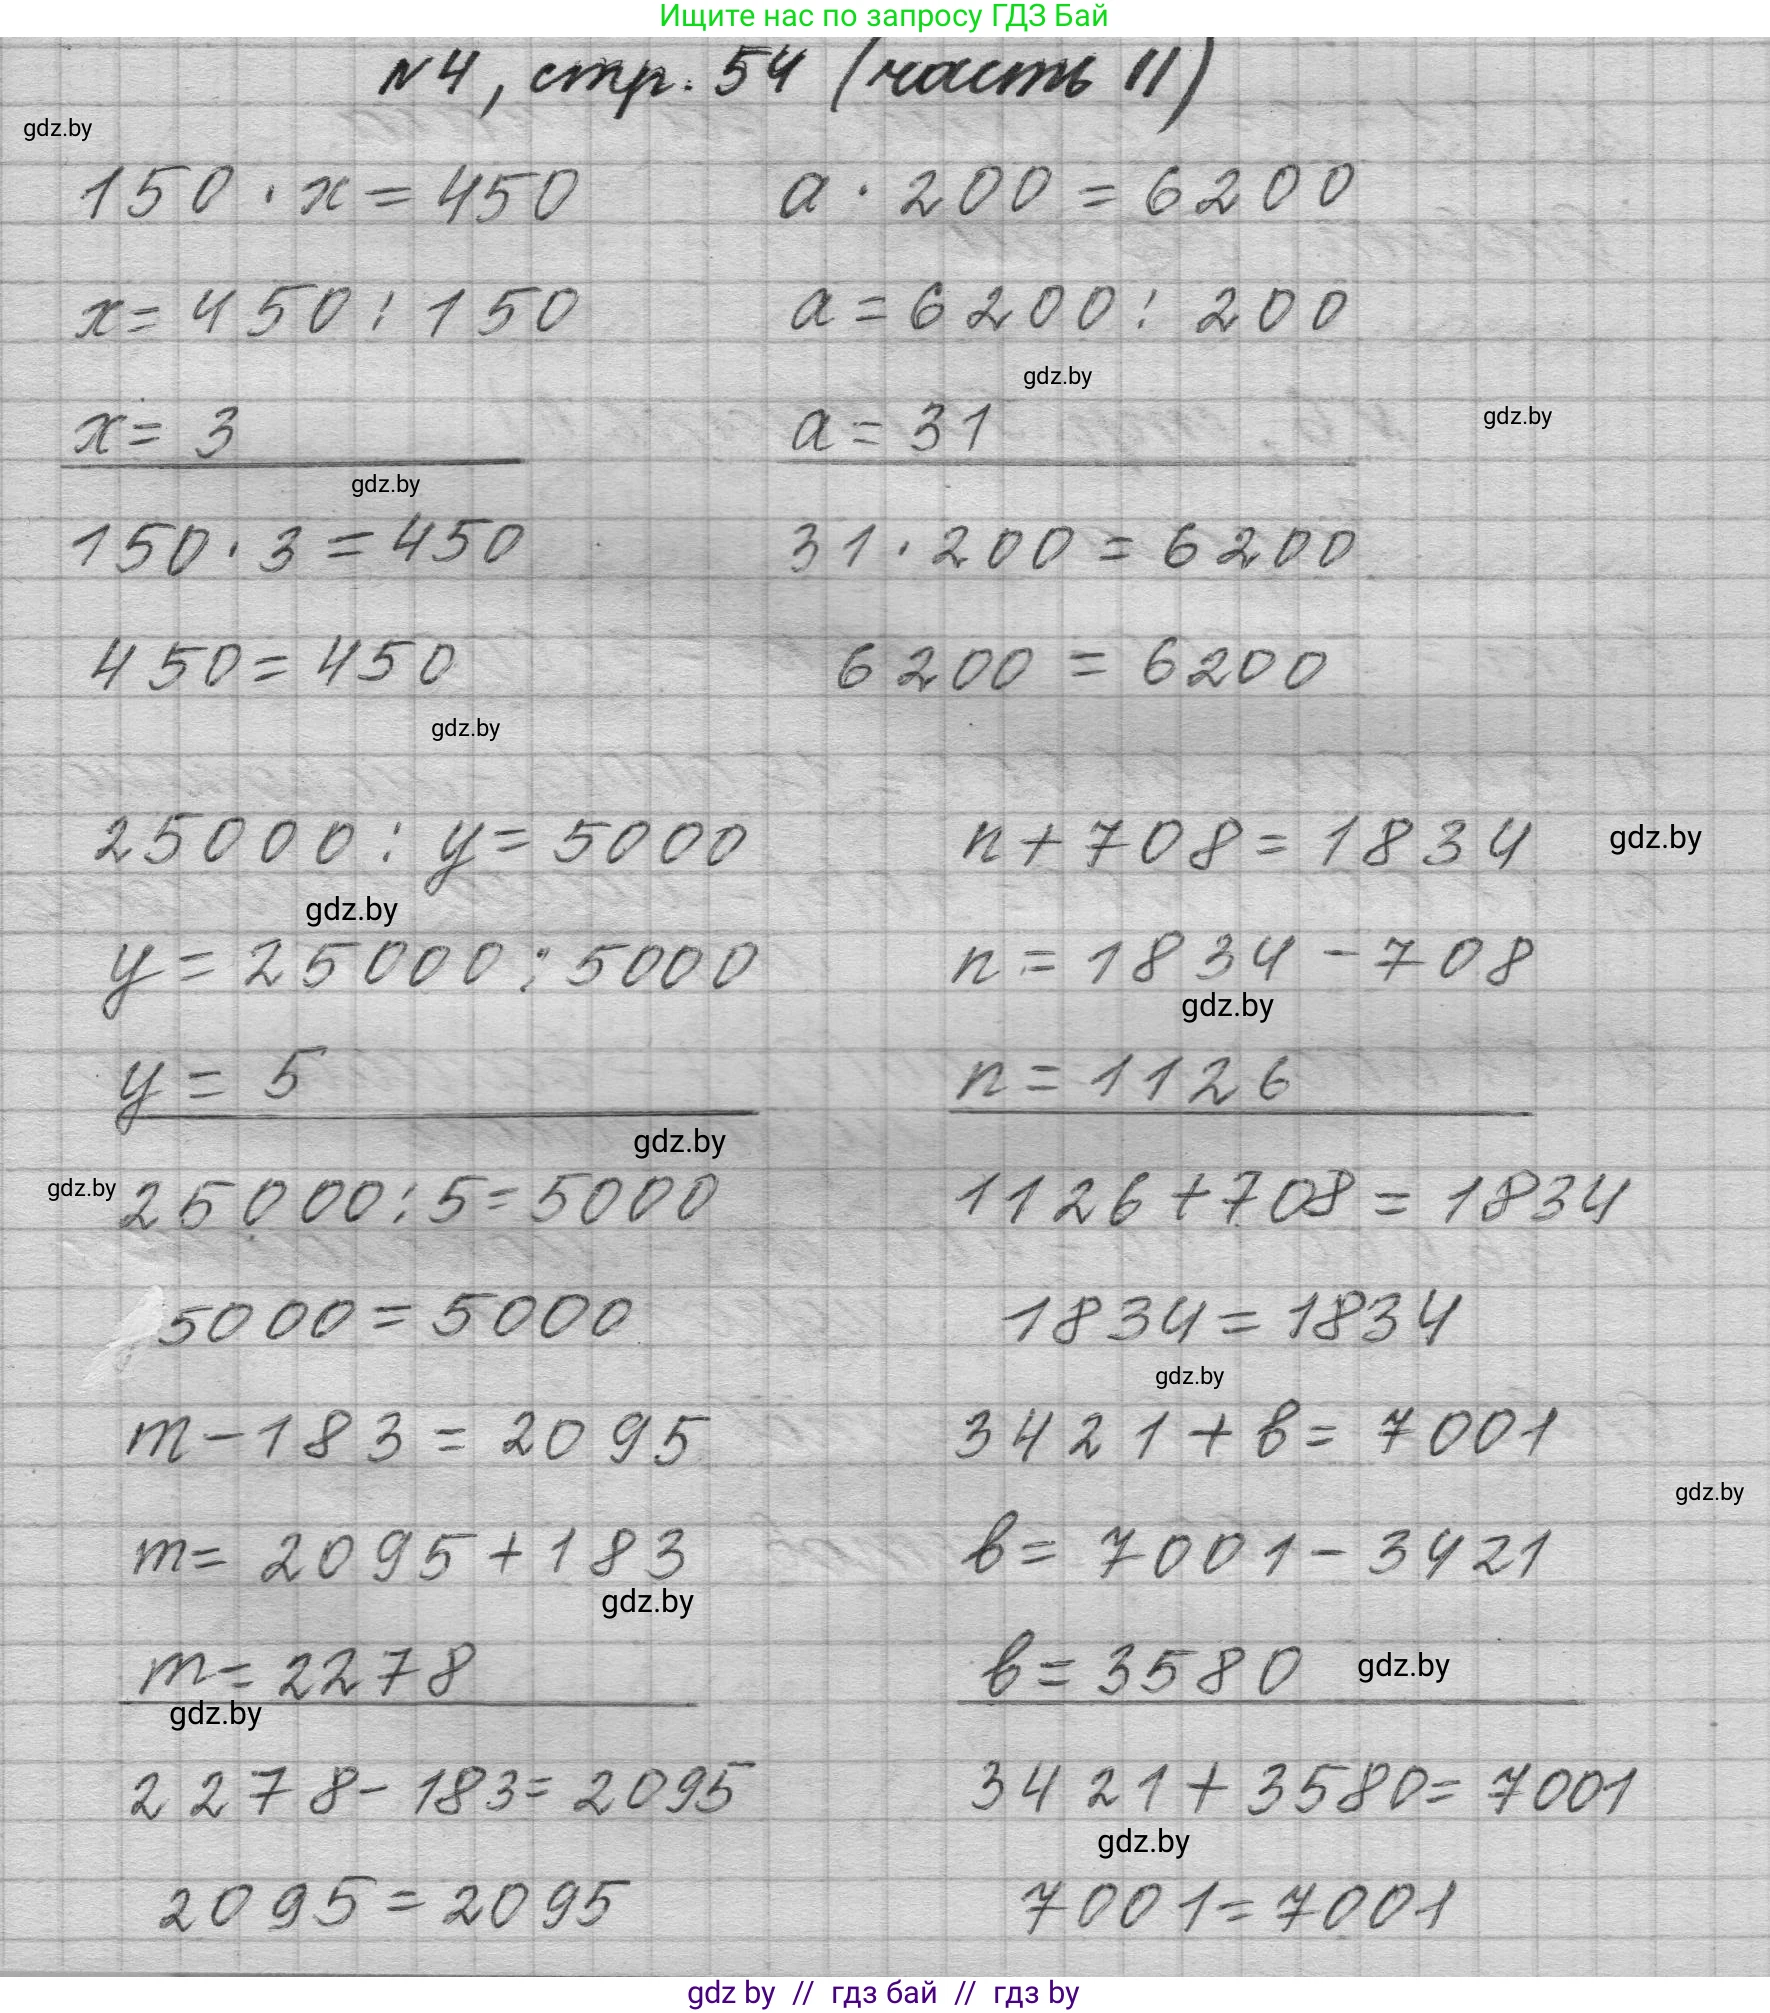 Ищите нас по запросу ГДЗ Бай
№4, стр. 54 (часть II)
gdz.by
150 · x = 450
a · 200 = 6200
x = 450 : 150
a = 6200 : 200
gdz.by
gdz.by
x = 3
a = 31
gdz.by
150 · 3 = 450
31 · 200 = 6200
450 = 450
6200 = 6200
gdz.by
25000 : y = 5000
n + 708 = 1834
gdz.by
gdz.by
y = 25000 : 5000
n = 1834 - 708
gdz.by
y = 5
n = 1126
gdz.by
gdz.by
25000 : 5 = 5000
1126 + 708 = 1834
5000 = 5000
1834 = 1834
gdz.by
m - 183 = 2095
3421 + в = 7001
gdz.by
m = 2095 + 183
в = 7001 - 3421
gdz.by
m = 2278
в = 3580
gdz.by
gdz.by
2278 - 183 = 2095
3421 + 3580 = 7001
gdz.by
2095 = 2095
7001 = 7001
gdz by // гдз бай // гдз by